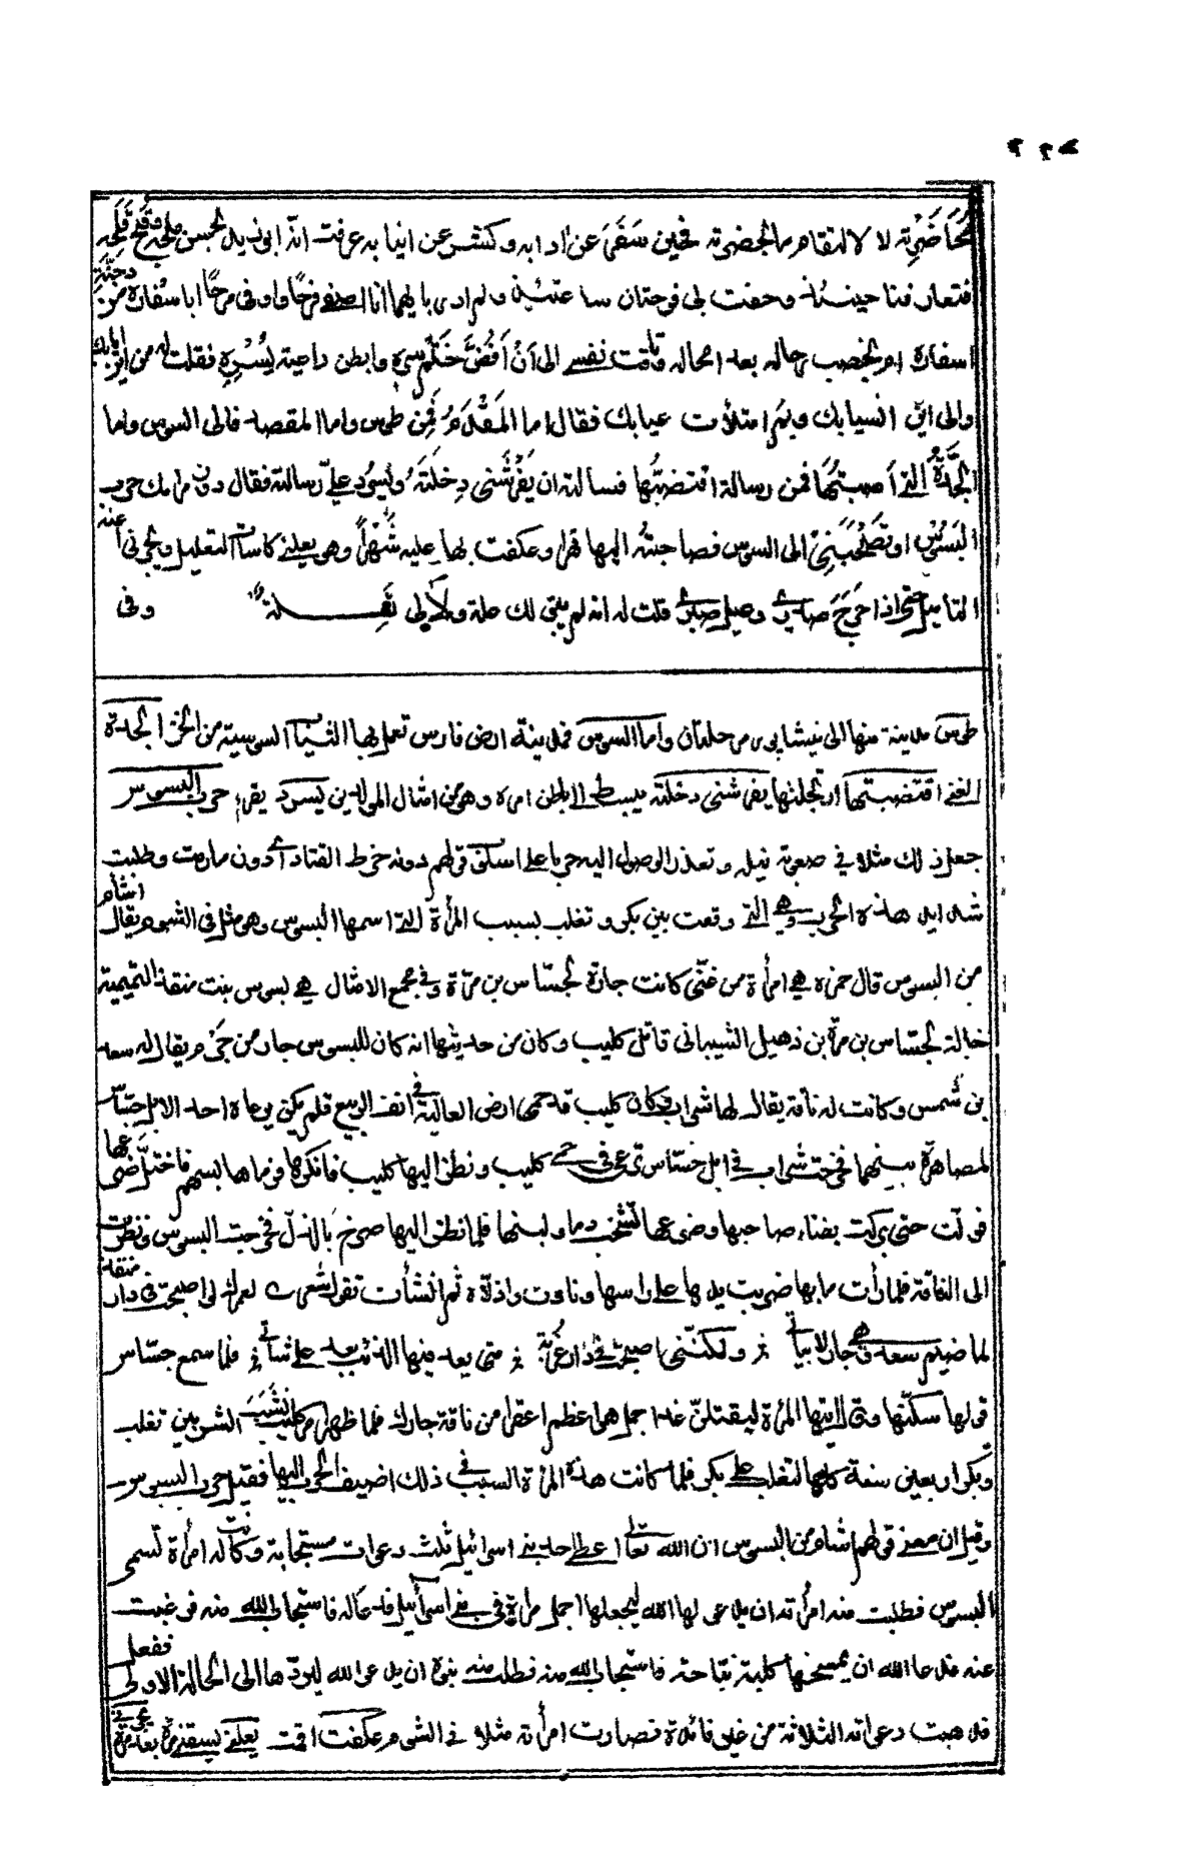 مُحَاضَرَتِه لا لالتقام ما بحضرته فحين سَفَرَ عن ادابه وكشر عن انيابه عرفت انه ابو زيد بحسن ملحه وقبح قَلَحِه
فتعارفنا حينئذ وحفت بى فرحتان ساعتئذ ولم ادر بايهما انا اصفى فرحًا واوفى مرحًا اباسفاره من دجنّة
اسفاره ام بخصب رحاله بعد امحاله وتاقت نفسى الى أنْ أفُضَّ خَتْمَ سرّه وابطن داعية يُسْره فقلت له من اين ايابك
والى اين انسيابك وبم امتلأت عيابك فقال اما المَقْدَم فمِن طوس واما المقصد فالى السوس واما
الجِدَةُ التى أصبتُها فمن رسالة اقتضبتُها فسالته ان يَفْرُشَنى دِخْلَتَهُ ويَسْرُد علىّ رسالته فقال دون مرامك حرب
البَسُوْس او تَصْحَبَنِىْ الى السوس فصاحبته اليها قهرا وعكفت بها عليه شَهْرًا وهو يعلنى كاسات التعليل ويجرنى اعنة
التاميل حتى اذا حَرِجَ صدرى وعيل صبرى قلت له انه لم يبق لك علة ولا لى تَعِلــــة وفى
طوس مدينة منها الى نيشابور مرحلتان واما السوس فمدينة ارض فارس تعمل بها الثياب السوسية من الخز الجدة
الغنى اقتضبتها ارتجلتها يفرشنى دخلته يبسط لى باطن امره وهو من امثال المولدين يسرد يقرء حرب البسوس
جعل ذلك مثلا فى صعوبة نيله وتعذر الوصول اليه جريا على اسلوب قولهم دونه خرط القتاد اى دون ما رمت وطلبت
شدايد هذه الحرب وهى التى وقعت بين بكر وتغلب بسبب المرأة التى اسمها البسوس وهو مثل فى الشوم يقال اشأم
من البسوس قال حمزه هى امرأة من غنّى كانت جارة لجسّاس بن مرّة وفى مجمع الامثال هى بسوس بنت منقذ التميمية
خالة لجسّاس بن مرّة بن ذهيل الشيبانى قاتل كليب وكان من حديثها انه كان للبسوس جار من جَرْم يقال له سعد
بن شمس وكانت له ناقة يقال لها شراب وكان كليب قد حمى ارض العالية فى انف الربيع فلم يكن يرعاه احد الا ابل جسّاس
لمصاهرة بينهما فخرجت شراب فى ابل جسّاس ترعى فى حمى كليب ونظر اليها كليب فانكرها فرماها بسهم فاختلّ ضرعها
فولت حتى بركت بفناء صاحبها وضرعها تشخب دما ولبنها فلما نظر اليها صرخ بالذلّ فخرجت البسوس ونظرت
الى الناقة فلما رأت ما بها ضربت يدها على راسها ونادت واذلّاه ثم انشأت تقول شعر لعمرك لو اصبحت فى دار منقذ
لما ضيم سعد وهو جار لابياتى ؛ ولكننى اصبحت فى دار غربة ؛ متى يعد فيها الذئب يعد على شاتى ؛ فلما سمع جسّاس
قولها سكّتها وقال ايتها المرأة ليقتلنّ غدا جمل هو اعظم عقرا من ناقة جارك فلما ظهر امر كليب نشب الشر بين تغلب
وبكر اربعين سنة كلها لتغلب على بكر فلما كانت هذه المرأة السبب فى ذلك اضيف الحرب اليها فقيل حرب البسوس
وقيل ان معنى قولهم اشأم من البسوس ان الله تعالى اعطى احد بنى اسرائيل ثلث دعوات مستجابة وكانت له امرأة تسمى
البسوس فطلبت منه امرأته ان يدعى لها الله ليجعلها اجمل مرأة فى بنى اسرائيل فدعا له فاستجاب الله منه فرغبت
عنه فدعا الله ان يمسخها كلبة نبّاحة فاستجاب الله منه فطلب منه بنوه ان يدعى الله ليردّها الى الحالة الاولى ففعل
فذهبت دعواته الثلاثة من غير فائدة فصارت امرأته مثلا فى الشوم عكفت اقمت يعلنى يسقنى مرة بعد مرة يجرنى